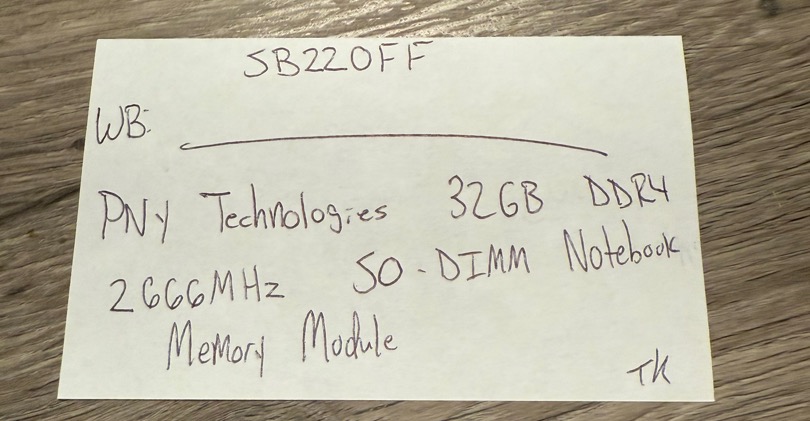 SB220FF
WB:
PNY Technologies 32GB DDR4
2666MHz SO-DIMM Notebook
Memory Module
TK